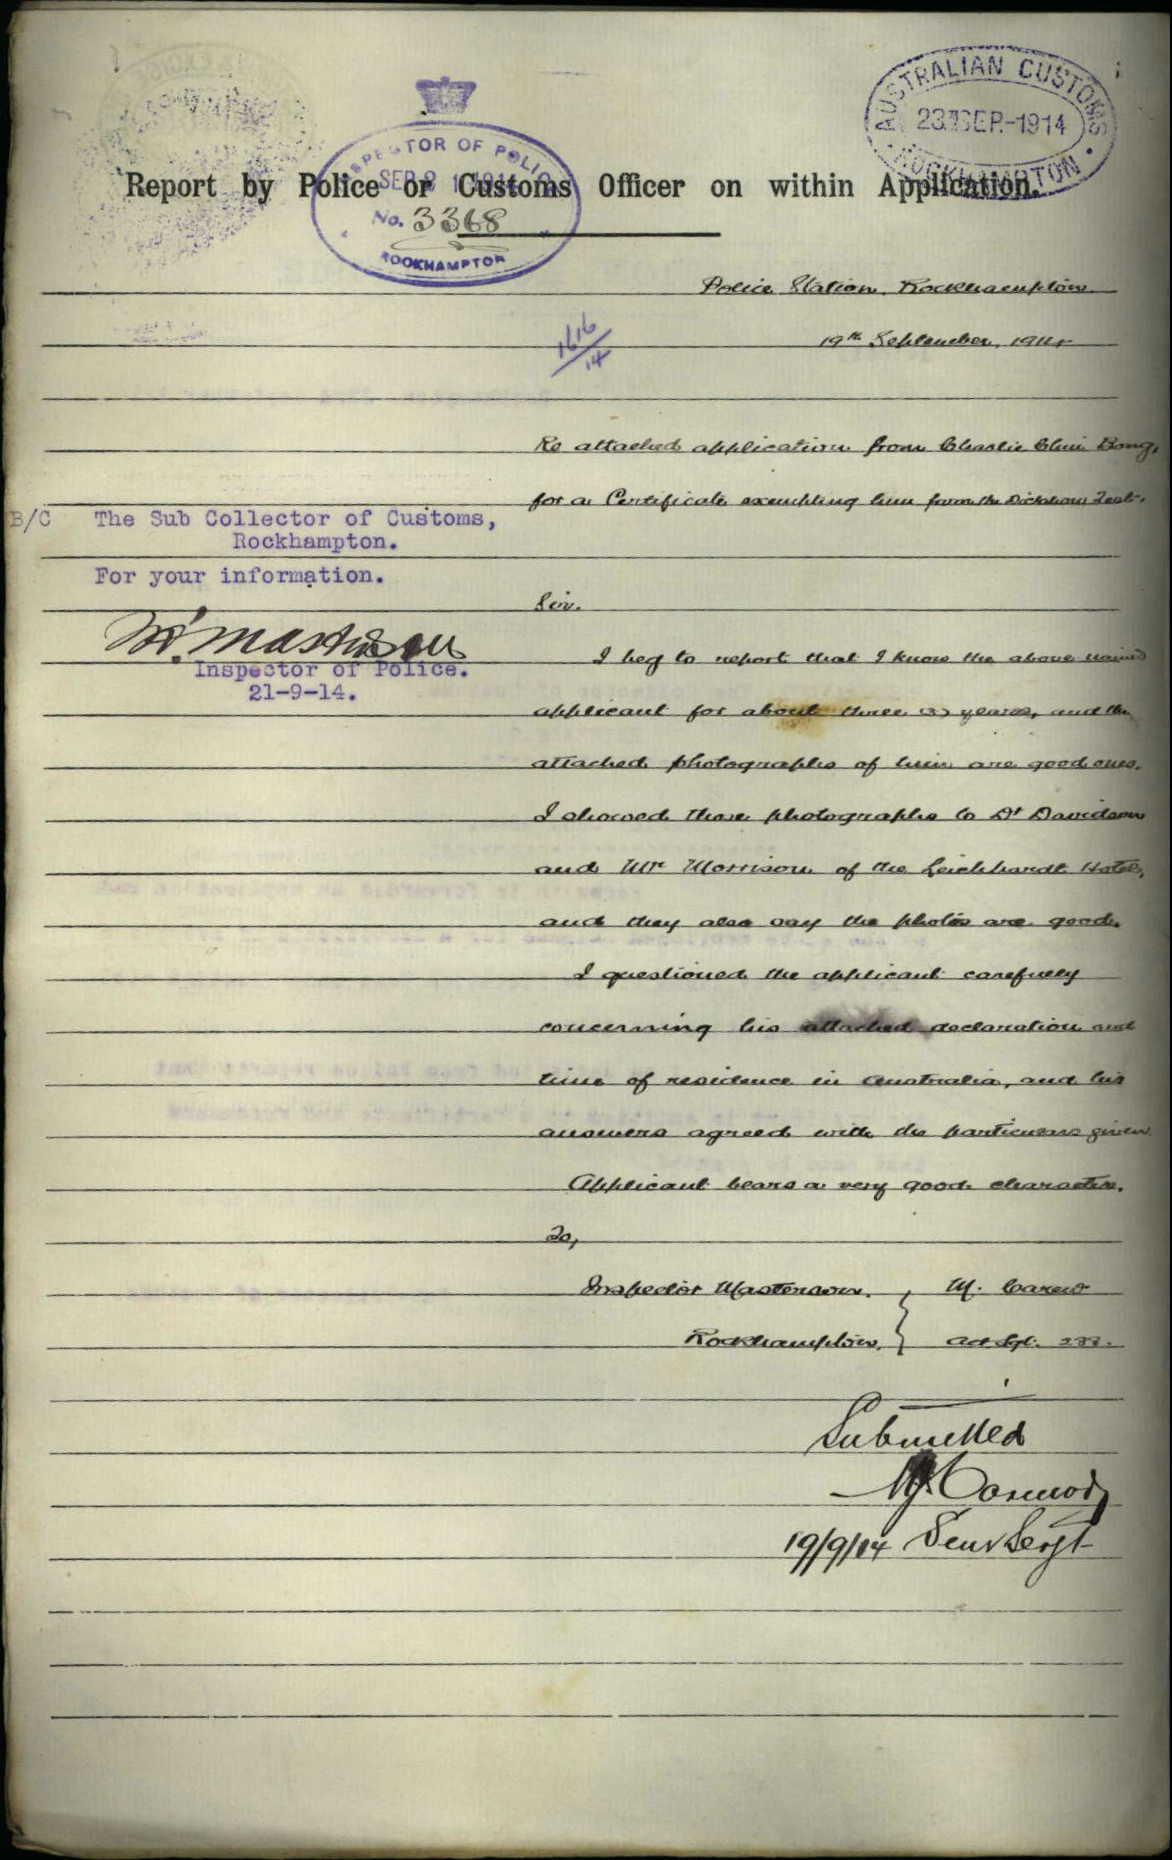 AUSTRALIAN CUSTOMS
23 SEP.-1914
ROCKHAMPTON
INSPECTOR OF POLICE
SEP 21 1914
No. 3368
ROCKHAMPTON
Report by Police or Customs Officer on within Application.
Police Station, Rockhampton
1616/14
19th September, 1914
Re attached application from Charlie Chin Bong,
for a Certificate exempting him from the Dictation Test.
B/C The Sub Collector of Customs,
Rockhampton.
For your information.
Sir.
Masterson
Inspector of Police.
21-9-14.
I beg to report that I know the above named
applicant for about three (3) years, and the
attached photographs of him are good ones.
I showed these photographs to Dr Davidson
and Mr Morrison of the Leichhardt Hotel,
and they also say the photos are good.
I questioned the applicant carefully
concerning his attached declaration and
time of residence in Australia, and his
answers agreed with the particulars given
Applicant bears a very good character.
To,
Inspector Masterson. M. Carew
Rockhampton. Act Sgt. 233.
Submitted
19/9/14 Senr Sergt